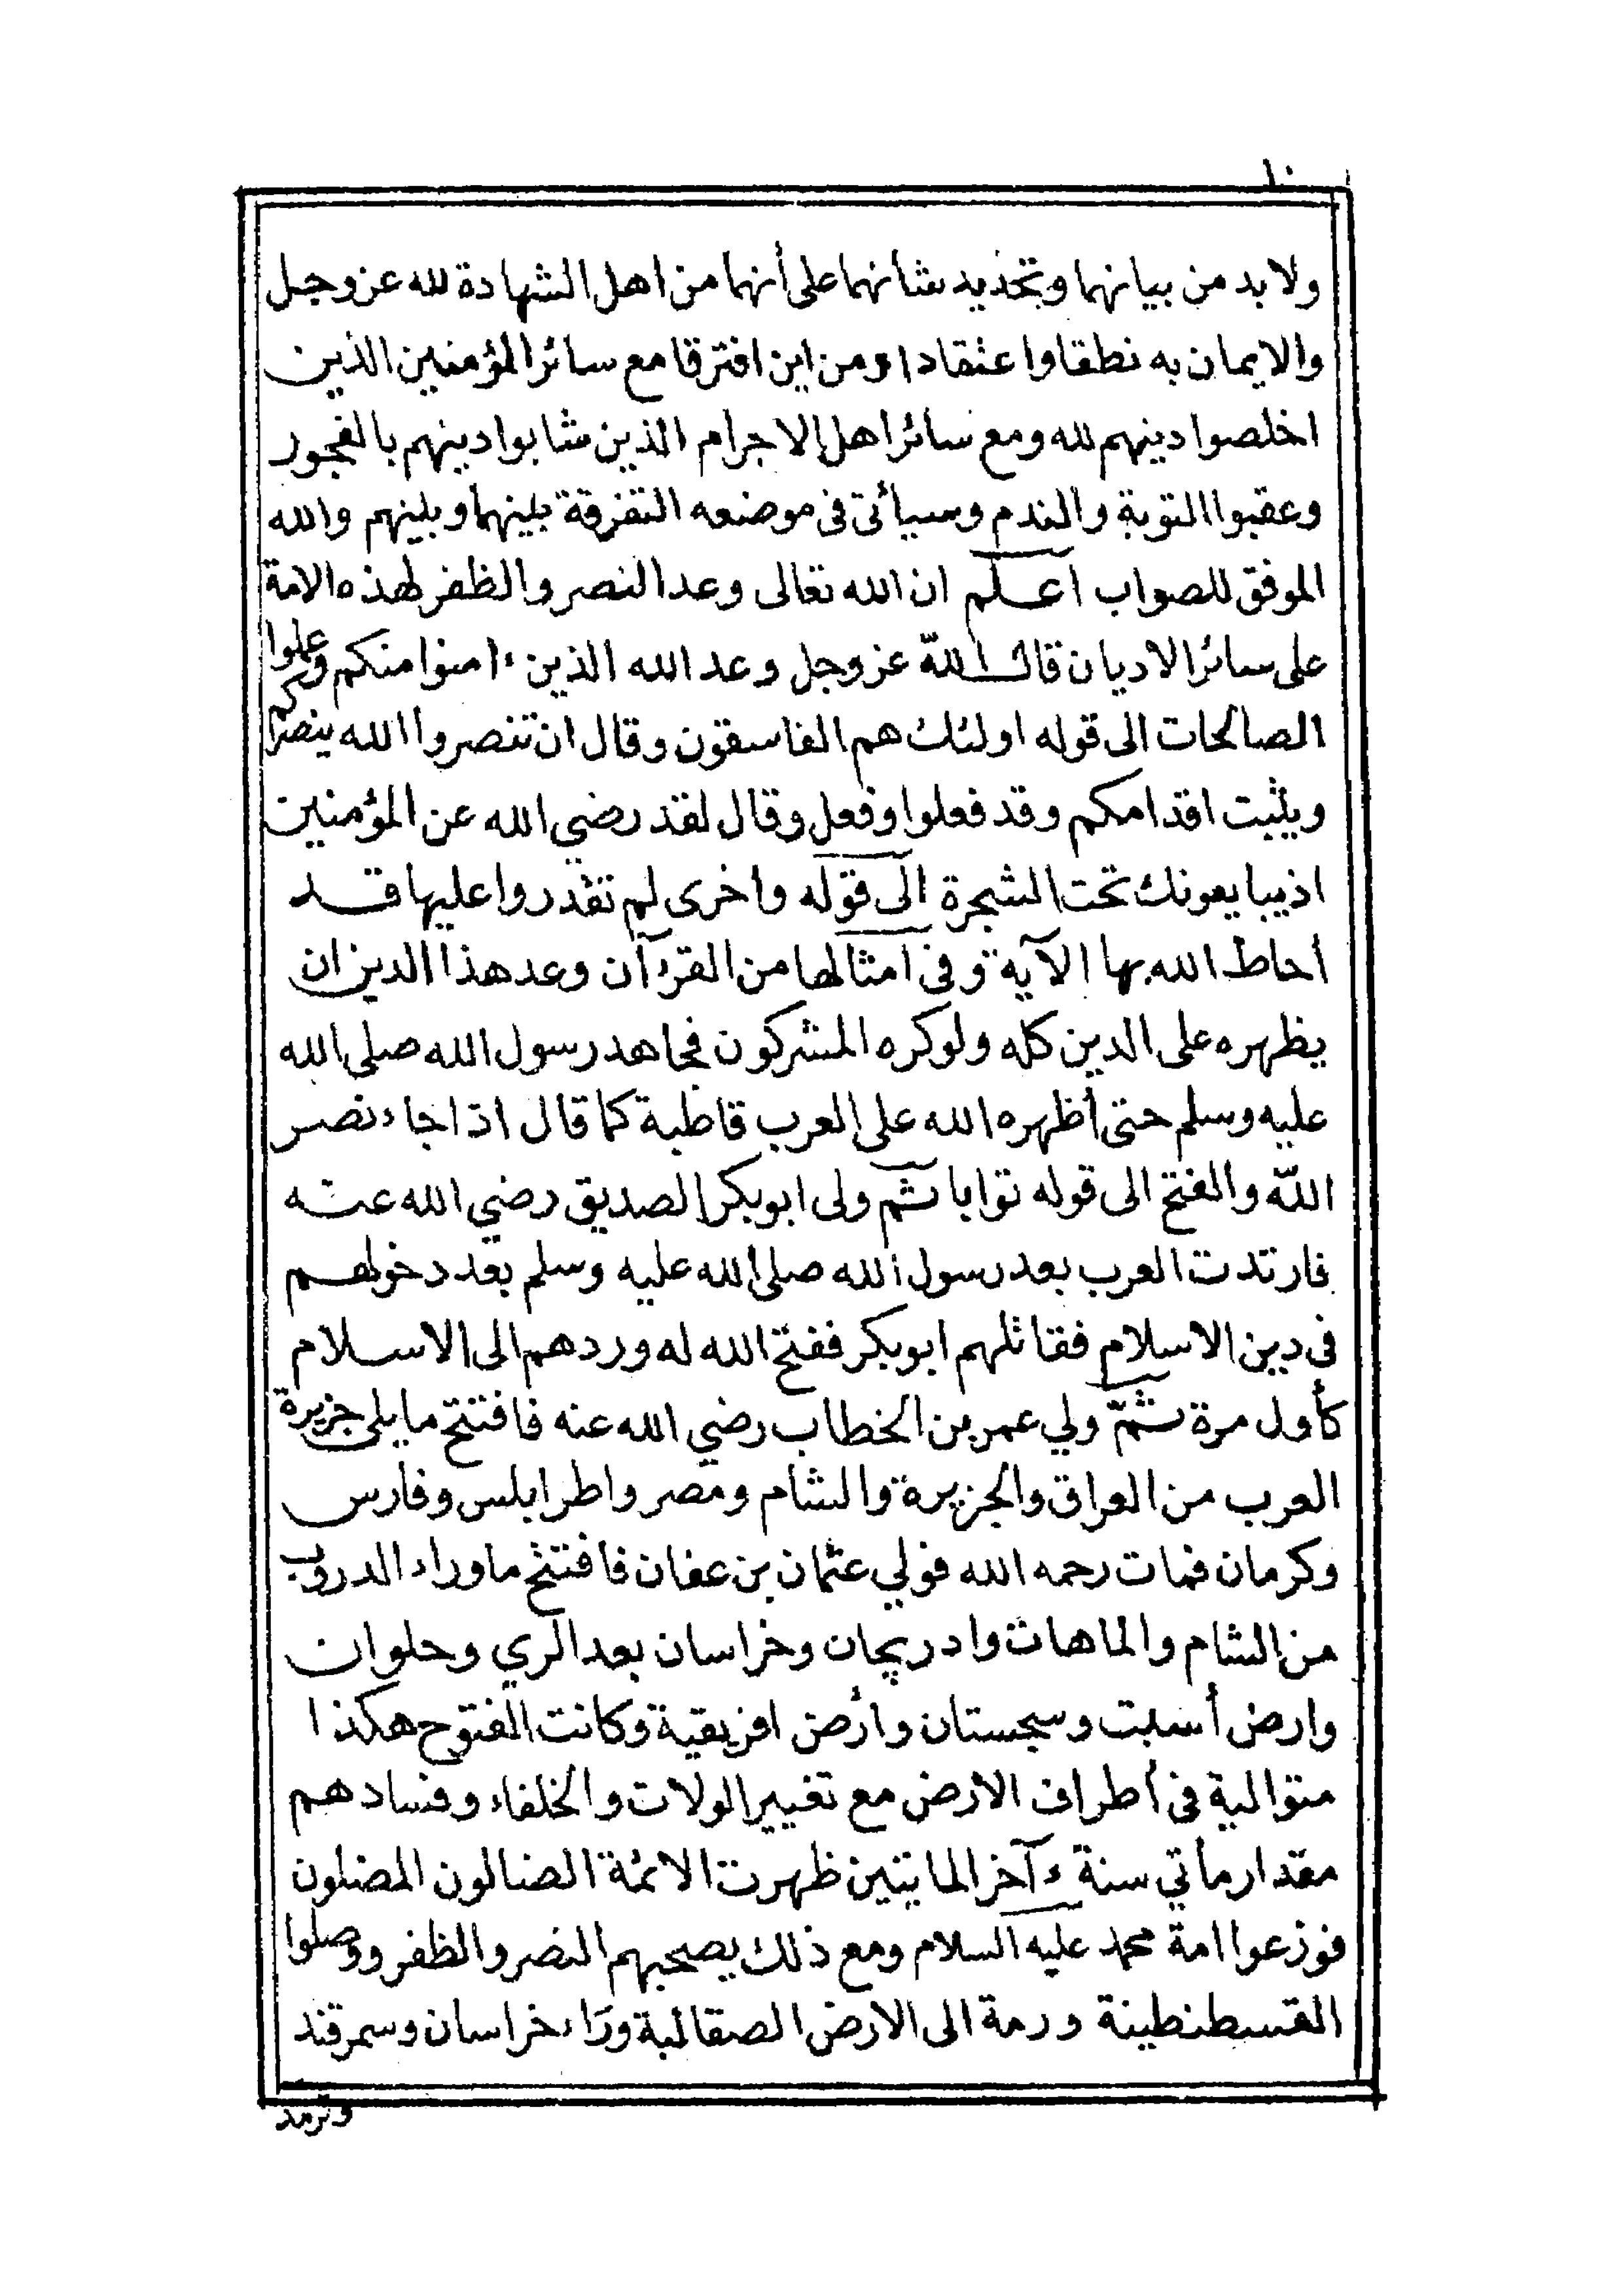 ١٠
ولا بد من بيانهما وتجديد شانهما على أنهما من اهل الشهادة لله عز وجل
والايمان به نطقا واعتقادا ومن اين افترقا مع سائر المؤمنين الذين
اخلصوا دينهم لله ومع سائر اهل الاجرام الذين شابوا دينهم بالفجور
وعقبوا التوبة والندم وسيأتي في موضعه التفرقة بينهما وبينهم والله
الموفق للصواب اعلم ان الله تعالى وعد النصر والظفر لهذه الامة
على سائر الاديان قال الله عز وجل وعد الله الذين ءامنوا منكم وعملوا
الصالحات الى قوله اولئك هم الفاسقون وقال ان تنصروا الله ينصركم
ويثبت اقدامكم وقد فعلوا وفعل وقال لقد رضي الله عن المؤمنين
اذ يبايعونك تحت الشجرة الى قوله واخرى لم تقدروا عليها قد
أحاط الله بها الآية وفي امثالها من القرءآن وعد هذا الدين ان
يظهره على الدين كله ولو كره المشركون فجاهد رسول الله صلى الله
عليه وسلم حتى أظهره الله على العرب قاطبة كما قال اذا جاء نصر
الله والفتح الى قوله توابا ثم ولى ابو بكر الصديق رضي الله عنه
فارتدت العرب بعد رسول الله صلى الله عليه وسلم بعد دخولهم
في دين الاسلام فقاتلهم ابو بكر ففتح الله له وردهم الى الاسلام
كأول مرة ثمّ ولي عمر بن الخطاب رضي الله عنه فافتتح ما يلى جزيرة
العرب من العراق والجزيرة والشام ومصر واطرابلس وفارس
وكرمان فمات رحمه الله فولي عثمان بن عفان فافتتح ما وراء الدروب
من الشام والماهات وادريجان وخراسان بعد الري وحلوان
وارض أسبت وسجستان وأرض افريقية وكانت الفتوح هكذا
متوالية في أطراف الأرض مع تغيير الولات والخلفاء وفسادهم
مقدار مأتي سنة ءآخر المايتين ظهرت الائمة الضالون المضلون
فوزعوا امة محمد عليه السلام ومع ذلك يصحبهم النصر والظفر ووصلوا
القسطنطينة ورمة الى الارض الصقالبة وراء خراسان وسمرقند
وترمد